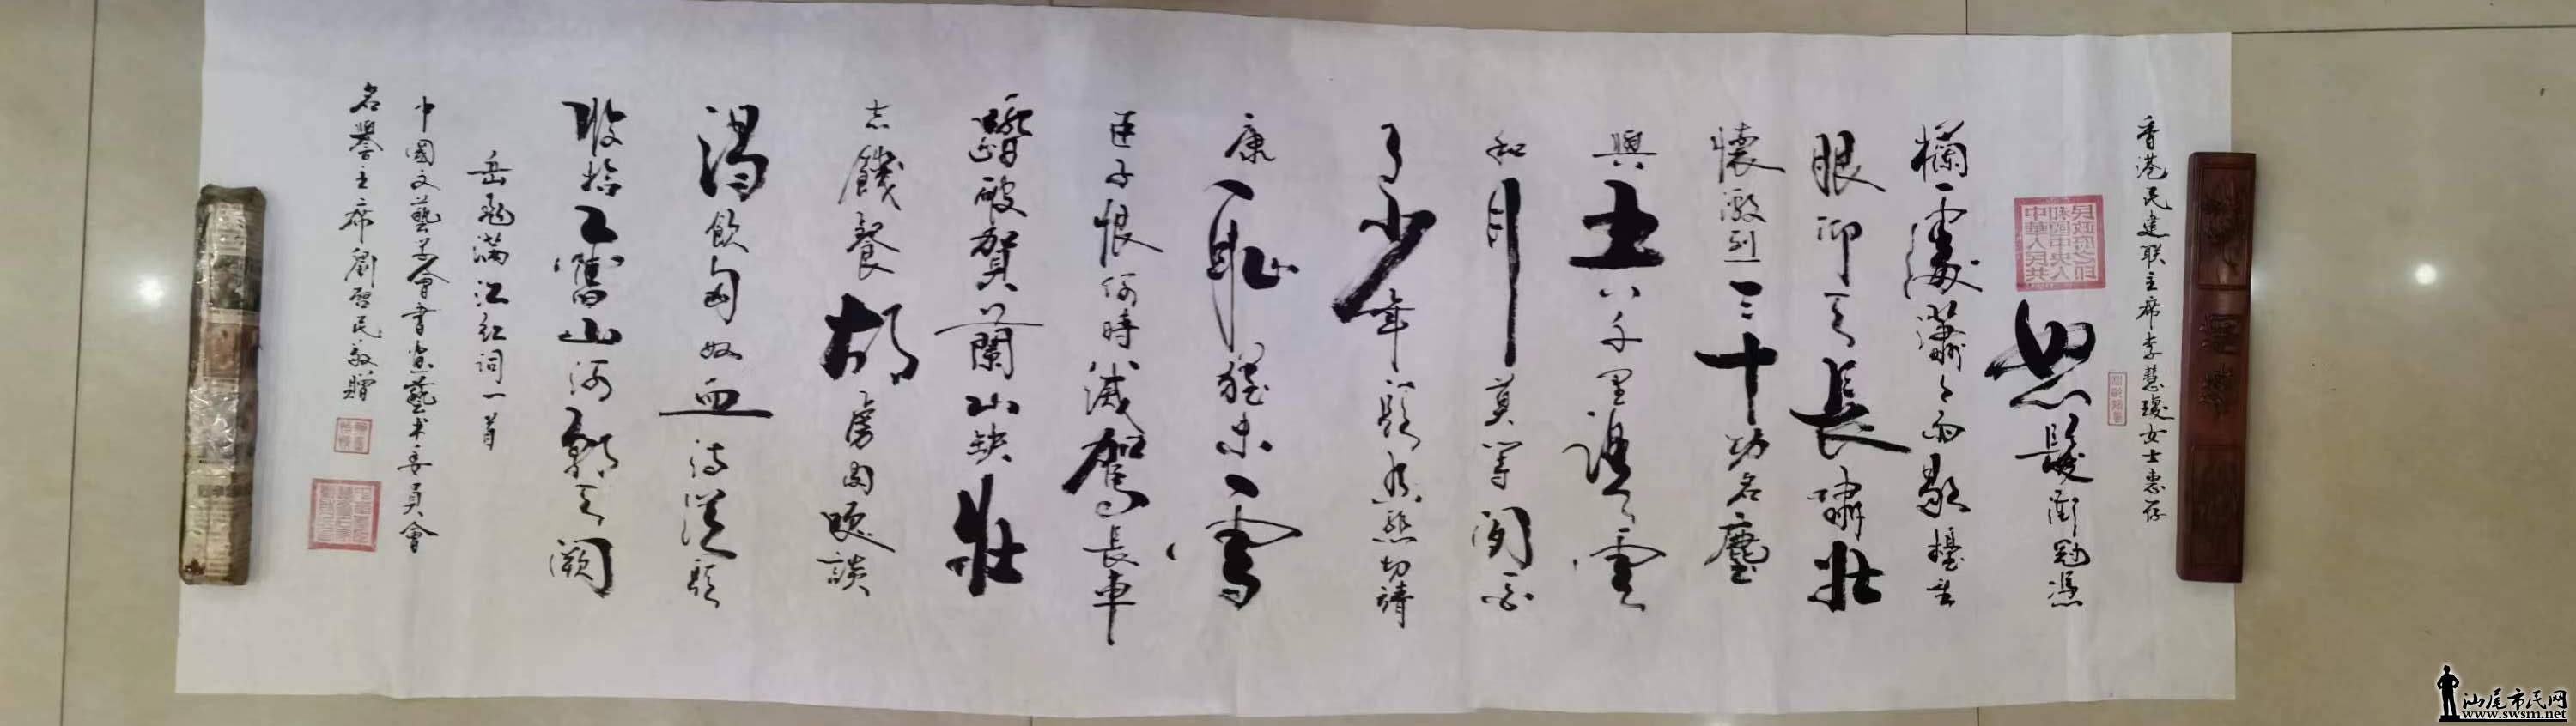 香港民建联主席李慧琼女士惠存
中華人民共和國中央人民政府之印
怒髮衝冠憑
欄處瀟々雨歇擡望
眼仰天長嘯壯
懷激烈三十功名塵
與土八千里路雲
和月莫等闲白
了少年頭空悲切靖
康耻猶未雪
臣子恨何時滅駕長車
踏破賀蘭山缺壯
志饑餐胡虜肉笑談
渴飲匈奴血待從頭
收拾舊山河朝天阙
岳飛满江红词一首
中國文藝学會書画藝术委員會
名譽主席劉啓民敬贈
汕尾市民网
www.swsm.net